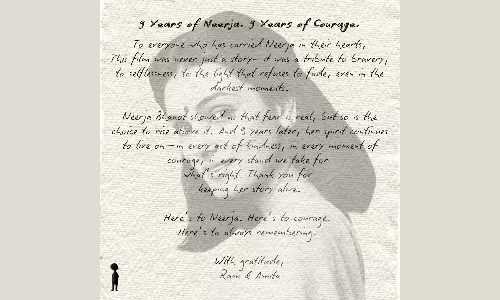 9 Years of Neerja. 9 Years of Courage.
To everyone who has carried Neerja in their hearts,
This film was never just a story- it was a tribute to bravery,
to selflessness, to the light that refuses to fade, even in the
darkest moments.
Neerja Bhanot showed us that fear is real, but so is the
choice to rise above it. And 9 years later, her spirit continues
to live on-in every act of kindness, in every moment of
courage, in every stand we take for
what's right. Thank you for
keeping her story alive.
Here's to Neerja. Here's to courage.
Here's to always remembering.
With gratitude,
Ram & Amita